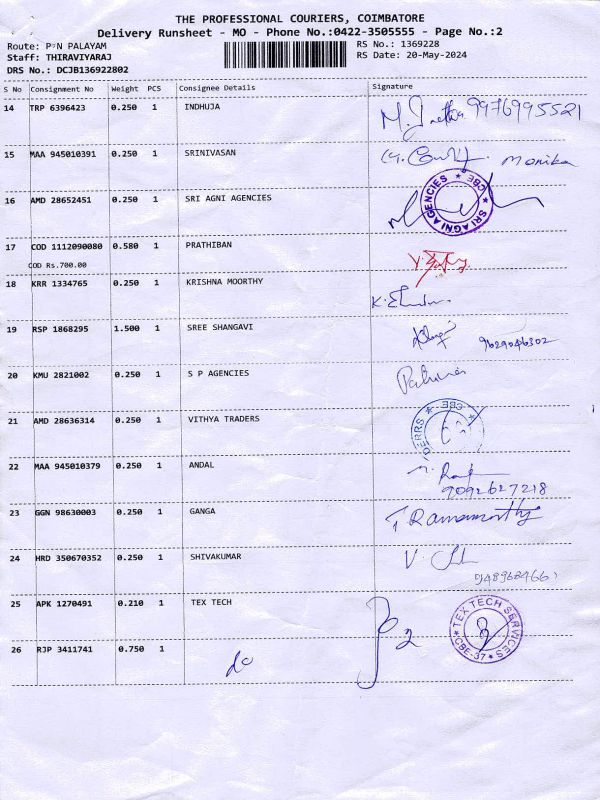 THE PROFESSIONAL COURIERS, COIMBATORE
Delivery Runsheet - MO - Phone No.:0422-3505555 - Page No.:2
Route: P N PALAYAM RS No.: 1369228
Staff: THIRAVIYARAJ RS Date: 20-May-2024
DRS No.: DCJB136922802
S No Consignment No Weight PCS Consignee Details Signature
14 TRP 6396423 0.250 1 INDHUJA 9976995521
15 MAA 945010391 0.250 1 SRINIVASAN Monika
16 AMD 28652451 0.250 1 SRI AGNI AGENCIES SRI AGNI AGENCIES ★ CBE ★
17 COD 1112090080 0.580 1 PRATHIBAN
COD Rs.700.00
18 KRR 1334765 0.250 1 KRISHNA MOORTHY
19 RSP 1868295 1.500 1 SREE SHANGAVI 9629046302
20 KMU 2821002 0.250 1 S P AGENCIES
21 AMD 28636314 0.250 1 VITHYA TRADERS ★ CBE ★
22 MAA 945010379 0.250 1 ANDAL
9092627218
23 GGN 98630003 0.250 1 GANGA T Ramamorthy
24 HRD 350670352 0.250 1 SHIVAKUMAR
25 APK 1270491 0.210 1 TEX TECH TEX TECH SERVICES ★ CBE-37 ★
26 RJP 3411741 0.750 1 do